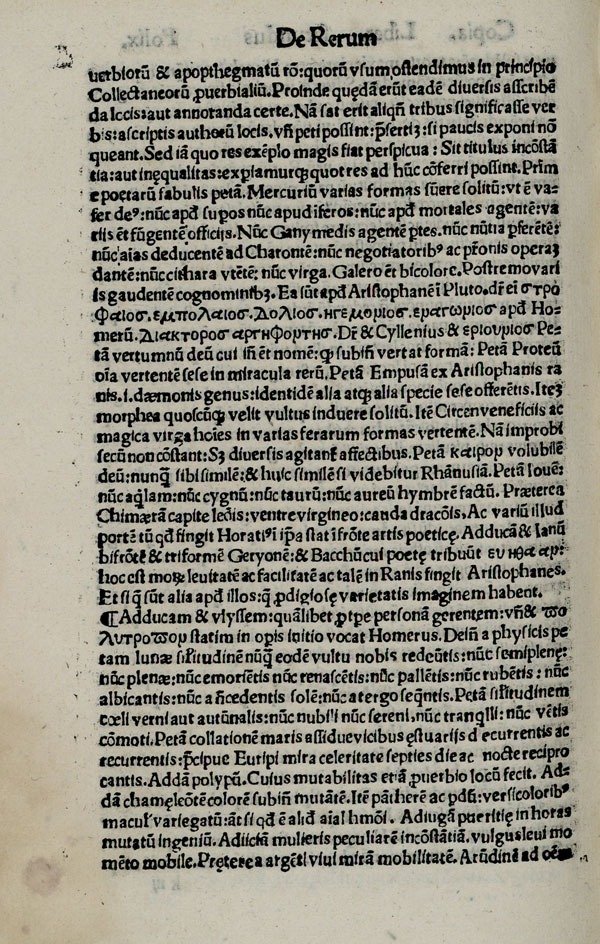 De Rerum
verbiorū & apopthegmatū rō: quorū vsum ostendimus in principio
Collectaneorū ꝓuerbialiū. Proinde quędā erūt eadē diversis ascribē
da locis: aut annotanda certe. Nā sat erit aliqñ tribus significasse ver
bis: ascriptis authorū locis. vñ peti possint: p̄sertiꝫ: si paucis exponi nō
queant. Sed iā quo res exēplo magis fiat perspicua: Sit titulus incōstā
tia: aut inęqualitas: expiamurqꝫ quot res ad hūc cōferri possint. Prim
e poetarū fabulis petā. Mercuriū varias formas sūere solitū: vt ē va⸗
fer deꝰ: nūc apđ supos nūc apud iferos: nūc apđ mortales agentē: va
riis ēt fūgentē officijs. Nūc Ganymedis agentē ꝑtes. nūc nūtia ꝑferētē:
nūc aīas deducentē ad Charontē: nūc negotiatoribꝰ ac p̄ronis operaꝫ
dantē: nūc cithara vtētē: nūc virga. Galero ēt bicolore. Postremo vari
is gaudentē cognominibꝫ. Ea sūt apđ Aristophanē ī Pluto. dr̄ eī στρο
φαιοσ. εμπολαιοσ. Δολιοσ. ηγεμοριοσ. εραγωριοσ apđ Ho⸗
merū. Διακτοροσ αργηφορτησ. Dr̄ & Cyllenius & εριουριοσ Pe⸗
tā vertumnū deū cui iñ ēt nomē: qꝫ subiñ vertat formā: Petā Proteū
oīa vertentē sese in miracula rerū. Petā Empusā ex Aristophanis ra
nis. i. dæmonis genus: identidē alia atqꝫ alia specie sese offerētis. Iteꝫ
morphea quoscūqꝫ velit vultus induere solitū. Itē Circen veneficiis ac
magica virga hoīes in varias ferarum formas vertentē. Nā improbi
secū non cōstant: Sꝫ diversis agitant̄ affectibus. Petā καιρορ volubilē
deū: nunqꝫ sibi similē: & huic similē si videbitur Rhānusiā. Petā Iouē:
nūc aqlam: nūc cygnū: nūc taurū: nūc aureū hymbrē factū. Præterea
Chimærā capite leōis: ventre virgineo: cauda dracōis. Ac variū illud
portētū qđ fingit Horatiꝰ ī ip̄a stat ī frōte artis poeticę. Adducā & Ianū
bifrōtē & triformē Geryonē: & Bacchū cui poetę tribuūt
hoc est morꝫ leuitatē ac facilitatē ac talē in Ranis fingit Aristophanes.
Et si q̄ sūt alia apđ illos: q̄ ꝓdigiosę varietatis imaginem habent.
¶ Adducam & vlyssem: quālibet ꝓ tꝑe personā gerentem: vñ &
statim in opis initio vocat Homerus. Deiñ a physicis pe
tam lunæ sil̄itudinē nūqꝫ eodē vultu nobis redeūtis: nūc semiplenę:
nūc plenæ: nūc emoriētis nūc renascētis: nūc pallētis: nūc rubētis: nūc
albicantis: nūc antecedentis solē: nūc a tergo seq̄ntis. Petā sil̄itudinem
cœli verni aut autūnalis: nūc nubili nūc sereni. nūc tranqlli: nūc vētis
cōmoti. Petā collationē maris assiduę vicibus ęstuariis decurrentis ac
recurrentis: p̄cipue Euripi mira celeritate septies die ac nocte recipro
cantis. Addā polypū. Cuius mutabilitas etiā ꝓuerbio locū fecit. Ad⸗
dā chamęleōtē colorē subiñ mutātē. Itē pātherē ac pdū: versicoloribꝰ
macul̄ variegatū: āt si qđ ē aliđ aīal hmōi. Adiugā pueritię in horas
mutatū ingeniū. Adiiciā mulieris peculiarē incōstātiā. vulgus leui mo
mēto mobile. Pręterea argēti viui mirā mobilitatē. Arūdinē ad oēm